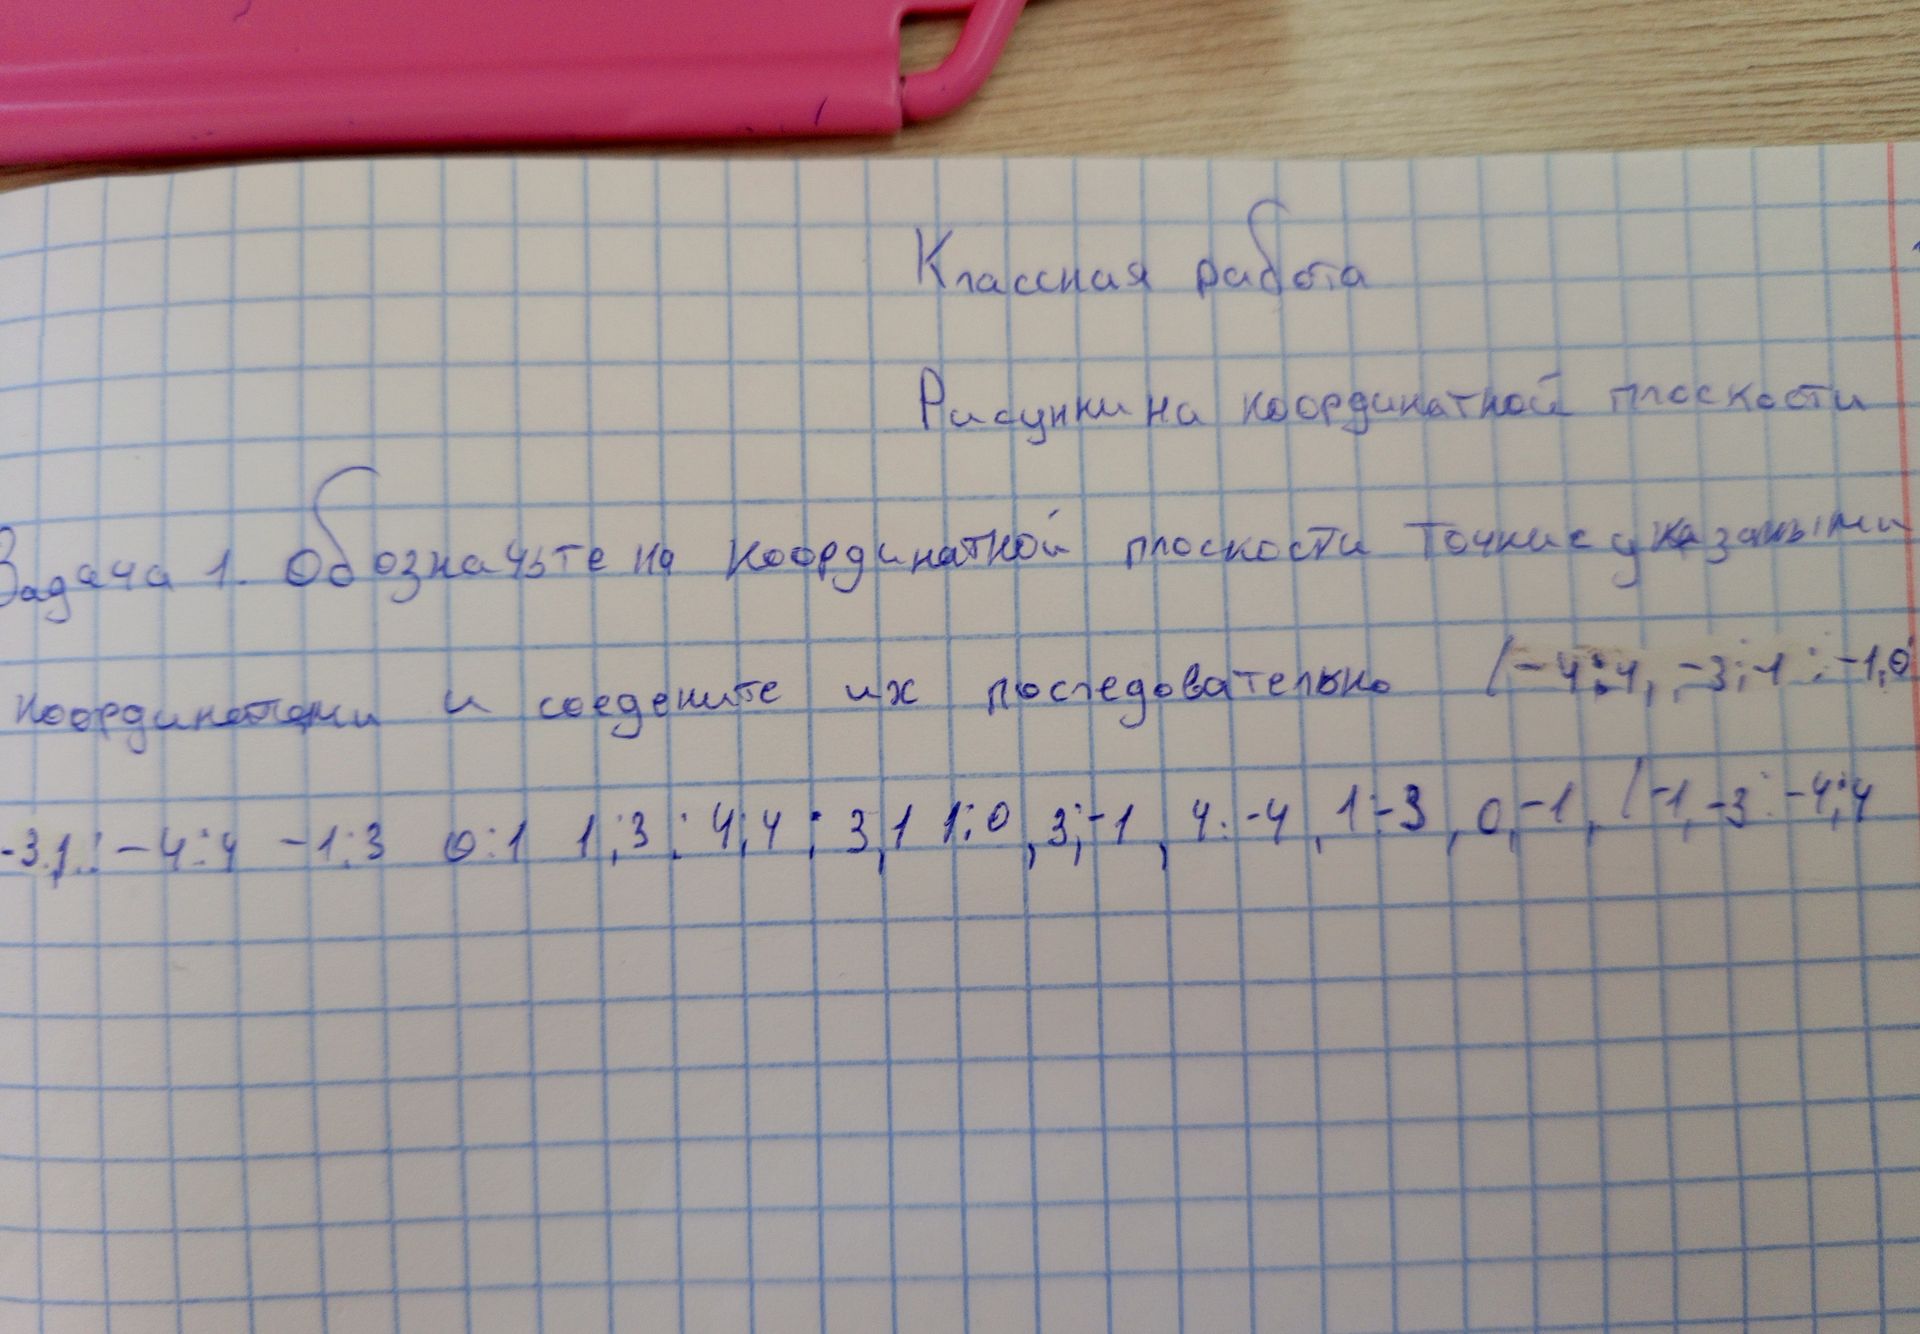 Классная работа
Рисунки на координатной плоскости
Задача 1. Обозначьте на координатной плоскости точки с указаными
координатами и соедените их последовательно (-4;4, -3;-1 ; -1,0
-3.1.: -4:4 -1:3 0:1 1;3; 4;4; 3,1 1;0, 3;-1, 4: -4, 1:-3, 0,-1, (-1,-3: -4;4